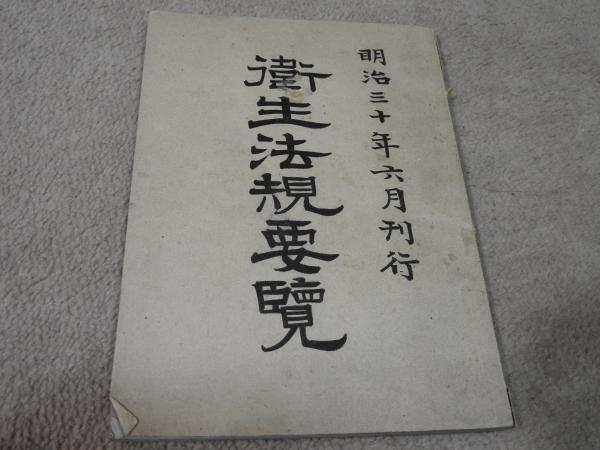 明治三十年六月刊行
衛生法規要覽